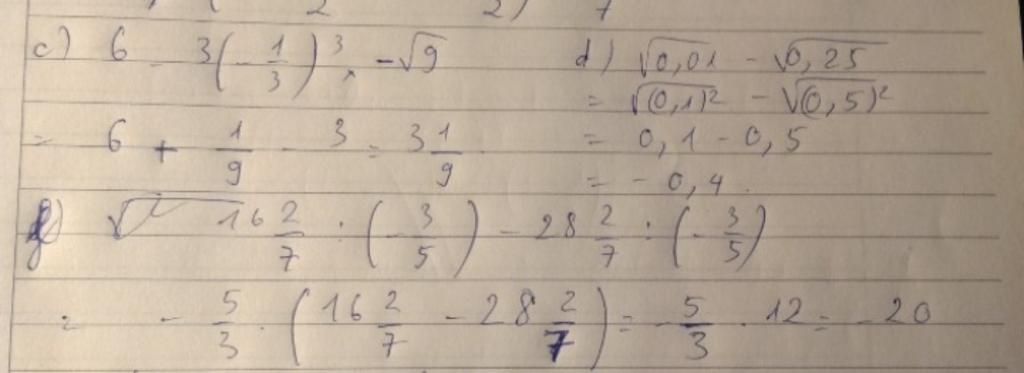 2 2) 7
c) 6 - 3(-1/3)^3 - √9
= 6 + 1/9 - 3 = 3 1/9
d) √0,01 - √0,25
= √(0,1)² - √(0,5)²
= 0,1 - 0,5
= - 0,4
16 2/7 : (-3/5) - 28 2/7 : (-3/5)
= -5/3 . (16 2/7 - 28 2/7) = -5/3 . 12 = -20